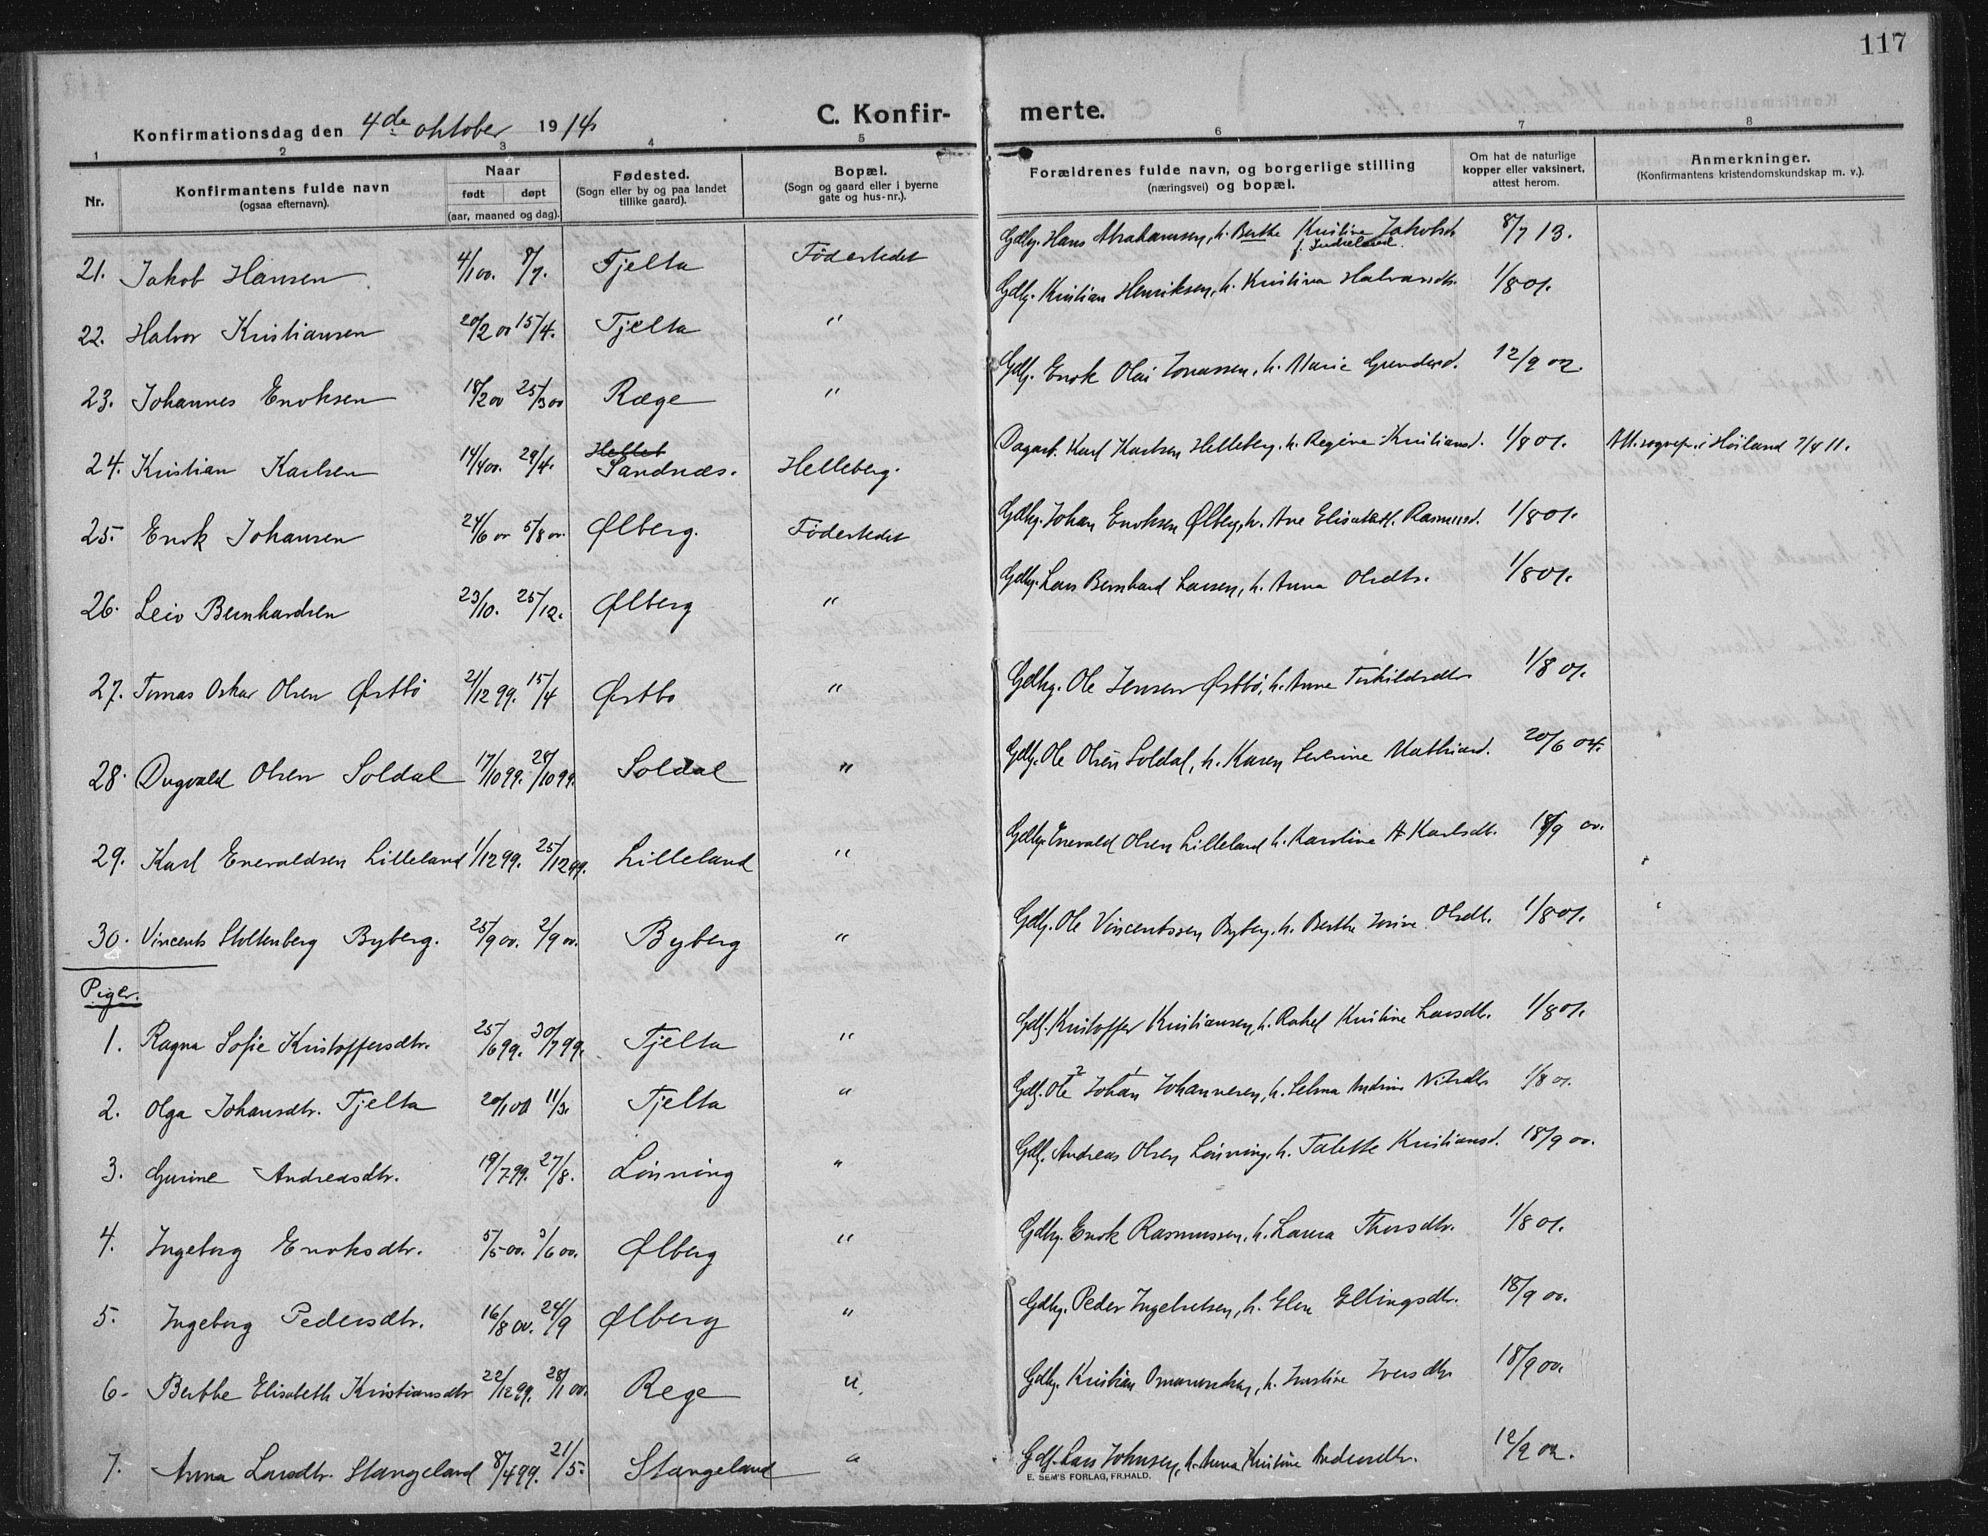 117
Konfirmationsdag den 4de oktober 1914
C. Konfirmerte.
1 2 3 4 5 6 7 8
Nr.
Konfirmantens fulde navn
(ogsaa efternavn).
Naar
født døpt
(aar, maaned og dag).
Fødested.
(Sogn eller by og paa landet
tillike gaard).
Bopæl.
(Sogn og gaard eller i byerne
gate og hus-nr.).
Forældrenes fulde navn, og borgerlige stilling
(næringsvei) og bopæl.
Om hat de naturlige
kopper eller vaksinert,
attest herom.
Anmerkninger.
(Konfirmantens kristendomskundskap m. v.).
21. Jakob Hansen 4/1 00. 8/7. Tjelta Födestedet Gdbr. Hans Abrahamsen, h. Berthe Kristine Jakobsdtr 8/7 13.
22. Halvor Kristiansen 20/2 00 15/4. Tjelta " Gdbr. Kristian Henriksen, h. Kristina Halvorsdtr. 1/8 01.
23. Johannes Enoksen 18/2 00 25/3 00 Ræge " Gdbr. Enok Olai Jonassen, h. Marie Gundersd. 12/9 02.
24. Kristian Karlsen 14/4 00. 29/4. Sandnæs. Helleberg. Dagarb. Karl Karlsen Helleberg. h. Regine Kristiansd. 1/8 01. Att. sognepr. i Höiland 7/4 11.
25. Enok Johansen 24/6 00 5/8 00. Ølberg. Födestedet Gdbr. Johan Enoksen Ølberg, h. Ane Elisabeth Rasmusd. 1/8 01.
26. Leiv Bernhardsen 23/10. 25/12. Ølberg " Gdbr. Lars Bernhard Larsen, h. Anna Olsdtr. 1/8 01.
27. Tomas Oskar Olsen Østbö 21/12 99. 15/4 Østbö " Gdbr. Ole Jensen Østbö, h. Anne Torkildsdtr. 1/8 01.
28. Dugvald Olsen Soldal 17/10 99. 29/10 99. Soldal " Gdbr. Ole Olsen Soldal, h. Karen Severine Mathiasd. 20/6 04.
29. Karl Enevaldsen Lilleland 1/12 99. 25/12 99. Lilleland " Gdbr. Enevald Olsen Lilleland h. Karoline A Karlsdtr. 18/9 00.
30. Vincents Stoltenberg Byberg. 25/9 00. 2/9 00. Byberg " Gdbr. Ole Vincentssen Byberg. h. Berthe Serine Olsdt. 1/8 01.
Piger.
1. Ragna Sofie Kristoffersdtr. 25/6 99. 30/7 99. Tjelta " Gdbr. Kristoffer Kristiansen, h. Rakel Kristine Larsdtr. 1/8 01.
2. Olga Johansdtr. Tjelta 20/1 00 11/3. Tjelta " Gdbr. Ole Johan Johannesen, h. Selma Andrine Nilsdtr 1/8 01.
3. Gurine Andreasdtr. 19/7 99. 27/8. Lönning " Gdbr. Andreas Olsen Lönning, h. Talette Kristiansd. 18/9 00.
4. Ingeborg Enoksdtr. 5/5 00. 3/6 00. Ølberg " Gdbr. Enok Rasmussen, h. Laura Thorsdtr. 1/8 01.
5. Ingeborg Pedersdtr. 16/8 00. 24/9 Ølberg " Gdbr. Peder Ingebretsen, h. Elen Ellingsdtr. 18/9 00.
6. Berthe Elisabeth Kristiansdtr 22/12 99. 28/1 00. Rege " Gdbr. Kristian h. Iversdtr 18/9 00.
7. Anna Larsdtr. Stangeland 8/4 99. 21/5. Stangeland " Gdbr. Lars Johnsen, h. Anna Kristine 12/9 02.
E. SEM'S FORLAG, FR.HALD.